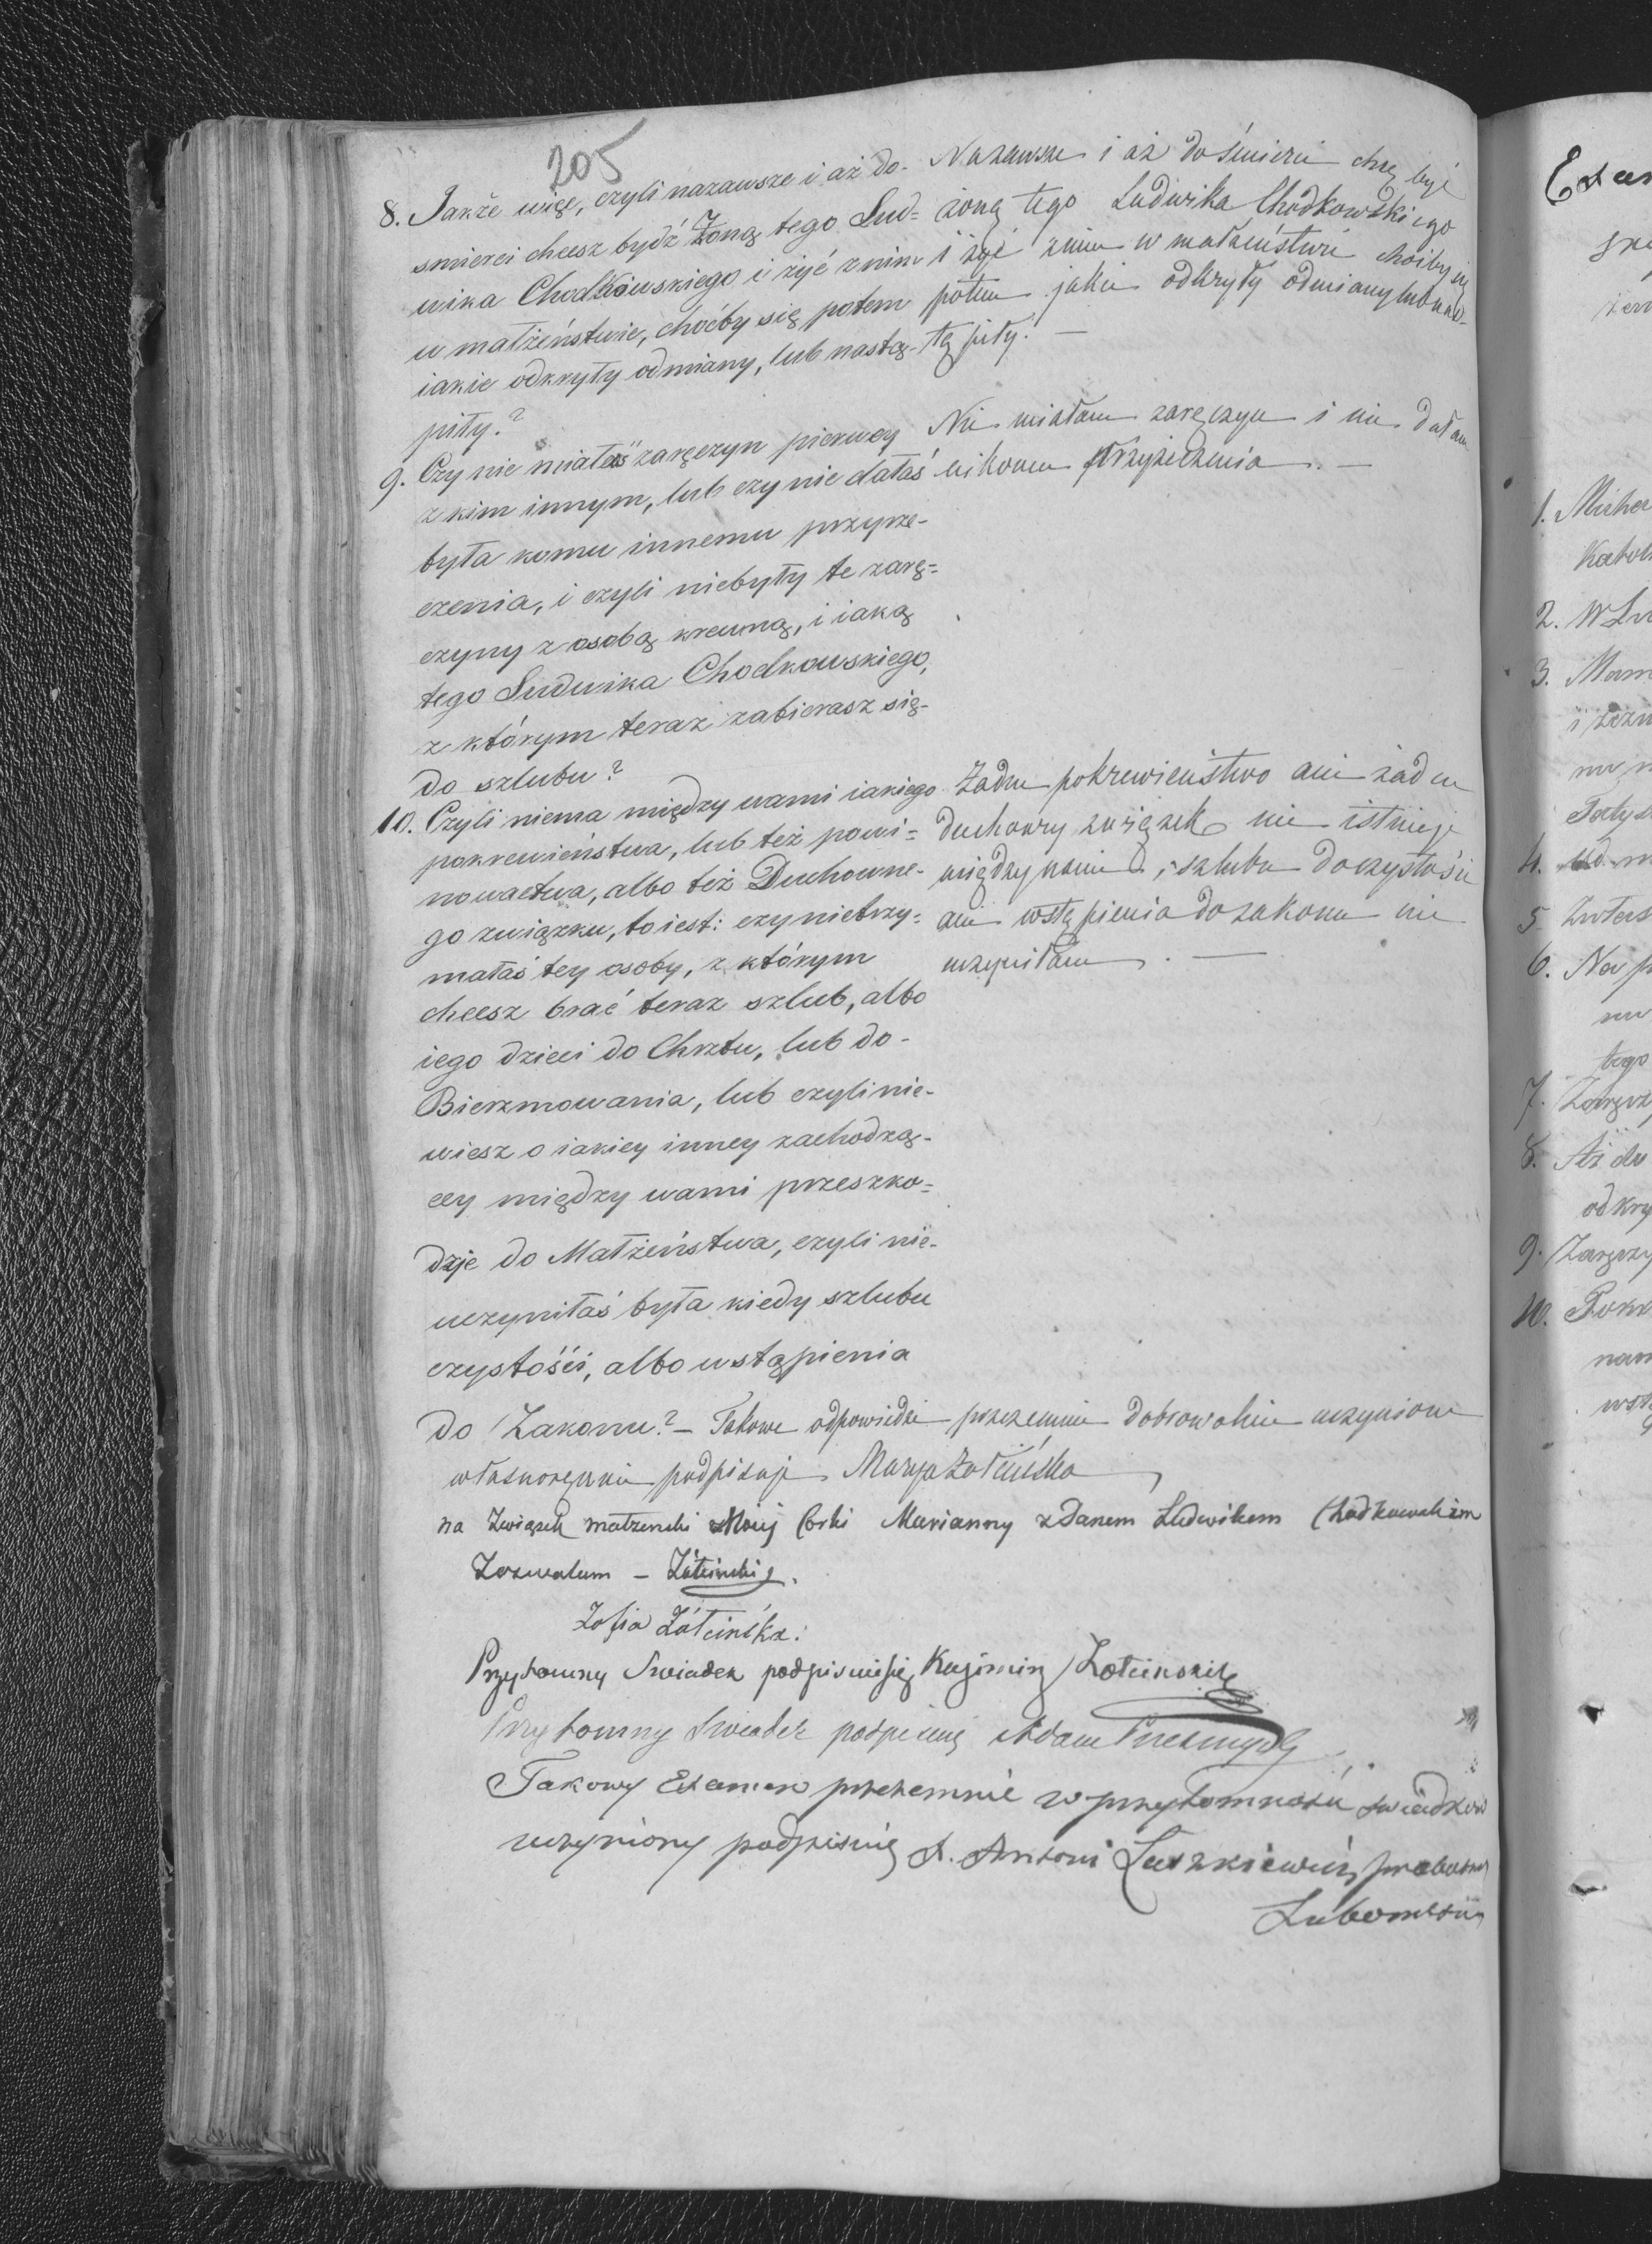 205
8. Jakże więc, czyli nazawsze i aż do-
smierci chcesz bydź Żoną tego Lud=
wika Chodkowskiego i żyć z nim
w małżeństwie, choćby się potem
iakie odkryły odmiany, lub nastą-
piły?
Nazawsze i aż do śmierci chcę być
żoną tego Ludwika Chodkowskiego
i żyć znim w małżeństwie choćby się
potem jakie odkryły odmiany lub nas-
tąpiły. —
9. Czy nie miałaś zaręczyn pierwey
z kim innym, lub czy nie dałaś
była komu innemu przyrze-
czenia, i czyli niebyły te zarę=
czyny z osobą krewną, i iaką
tego Ludwika Chodkowskiego,
z którym teraz zabierasz się-
do szlubu?
Nie miałam zaręczyn i nie dałam
nikomu przyrzeczenia. —
10. Czyli niema między wami iakiego
pokrewieństwa, lub też powi=
nowactwa, albo też Duchowne-
go związku, to iest: czy nietrzy=
małaś tey osoby, z którym
chcesz brać teraz szlub, albo
iego dzieci do Chrztu, lub do-
Bierzmowania, lub czyli nie-
wiesz o iakiey inney zachodzą-
cey między wami przeszko=
dzie do Małżeństwa, czyli nie-
uczyniłaś była kiedy szlubu
czystości, albo wstąpienia
do Zakonu? —
Żadne pokrewieństwo ani żaden
duchowny związek nie istnieje
między nami, szlubu doczystości
ani wstąpienia do zakonu nie
uczyniłam. —
Takowe odpowiedzi przezemnie dobrowolnie uczynione
własnoręcznie podpisuję Marya Żółcińska
na Związek małzenski Moiej Corki Marianny z Panem Ludwikem Chodkowskim
Zezwalam — Żółcinski
Zofia Żółcińska.
Przytomny Swiadek podpisuię się Kazimirz Zolcinski
Przytomny Swiadek podpisuię Adam
Takowy Examen przezemnie w przytomności swiadków
uczyniony podpisuię X. Antoni Laszkiewicz proboszcz